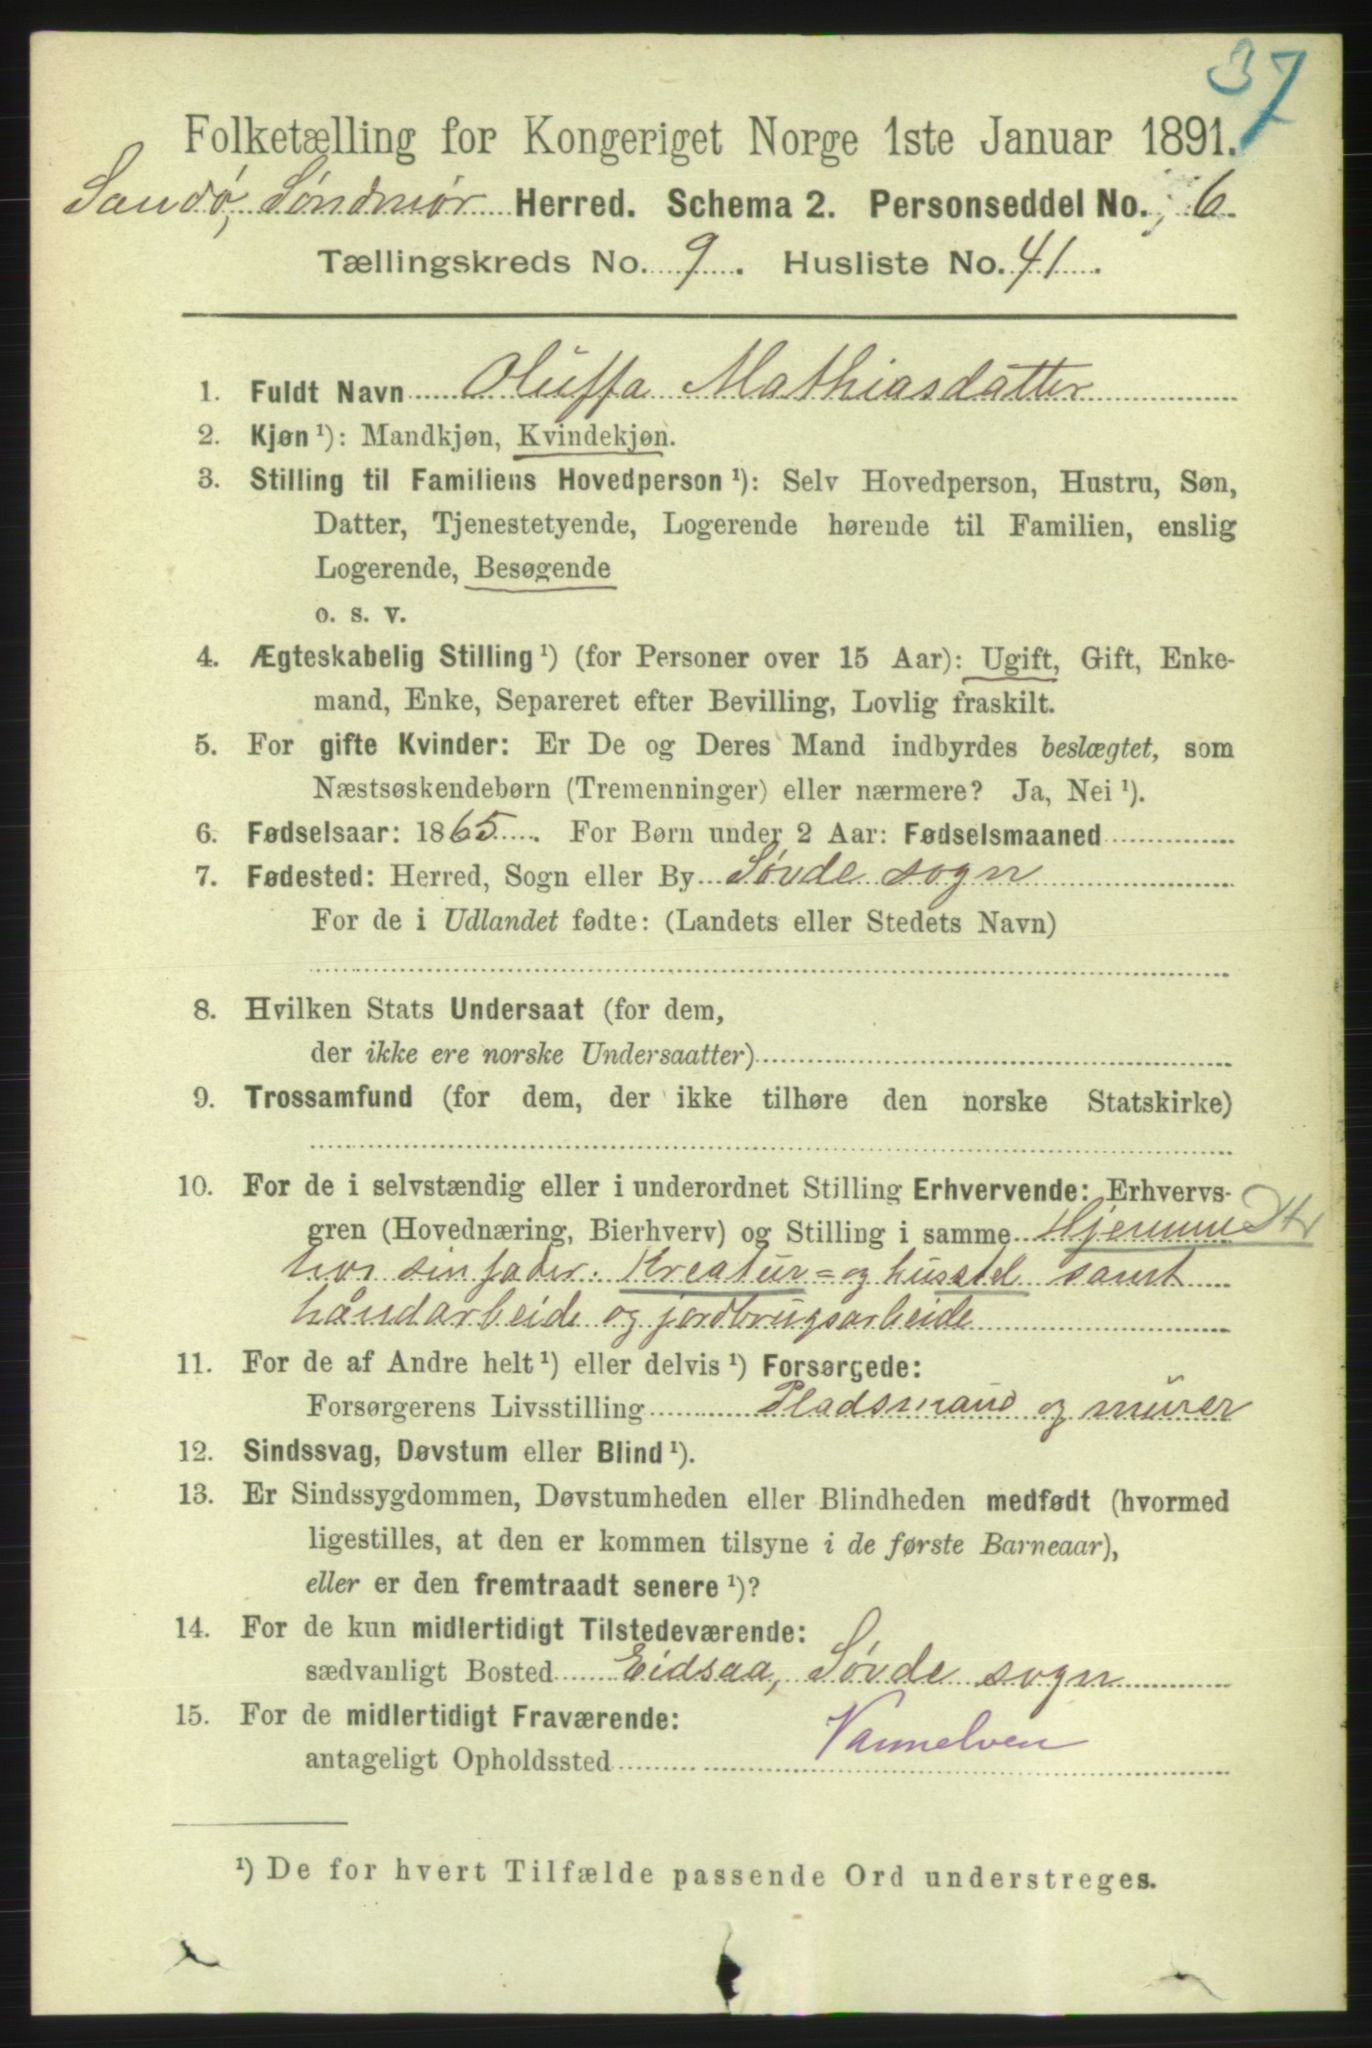 37
Folketælling for Kongeriget Norge 1ste Januar 1891.
Sandø, Søndmør Herred. Schema 2. Personseddel No. 6.
Tællingskreds No. 9. Husliste No. 41.
1. Fuldt Navn Oluffa Mathiasdatter
2. Kjøn ¹): Mandkjøn, Kvindekjøn.
3. Stilling til Familiens Hovedperson ¹): Selv Hovedperson, Hustru, Søn,
Datter, Tjenestetyende, Logerende hørende til Familien, enslig
Logerende, Besøgende
o. s. v.
4. Ægteskabelig Stilling ¹) (for Personer over 15 Aar): Ugift, Gift, Enke-
mand, Enke, Separeret efter Bevilling, Lovlig fraskilt.
5. For gifte Kvinder: Er De og Deres Mand indbyrdes beslægtet, som
Næstsøskendebørn (Tremenninger) eller nærmere? Ja, Nei ¹).
6. Fødselsaar: 1865. For Børn under 2 Aar: Fødselsmaaned
7. Fødested: Herred, Sogn eller By Søvde sogn
For de i Udlandet fødte: (Landets eller Stedets Navn)
8. Hvilken Stats Undersaat (for dem,
der ikke ere norske Undersaatter)
9. Trossamfund (for dem, der ikke tilhøre den norske Statskirke)
10. For de i selvstændig eller i underordnet Stilling Erhvervende: Erhvervs-
gren (Hovednæring, Bierhverv) og Stilling i samme Hjemme Dtr
hos sin fader. Kreatur= og husstel samt
håndarbeide og jordbrugsarbeide
11. For de af Andre helt ¹) eller delvis ¹) Forsørgede:
Forsørgerens Livsstilling Pladsmand og murer
12. Sindssvag, Døvstum eller Blind ¹).
13. Er Sindssygdommen, Døvstumheden eller Blindheden medfødt (hvormed
ligestilles, at den er kommen tilsyne i de første Barneaar),
eller er den fremtraadt senere ¹)?
14. For de kun midlertidigt Tilstedeværende:
sædvanligt Bosted Eidsaa, Søvde sogn
15. For de midlertidigt Fraværende: Vannelven
antageligt Opholdssted
¹) De for hvert Tilfælde passende Ord understreges.